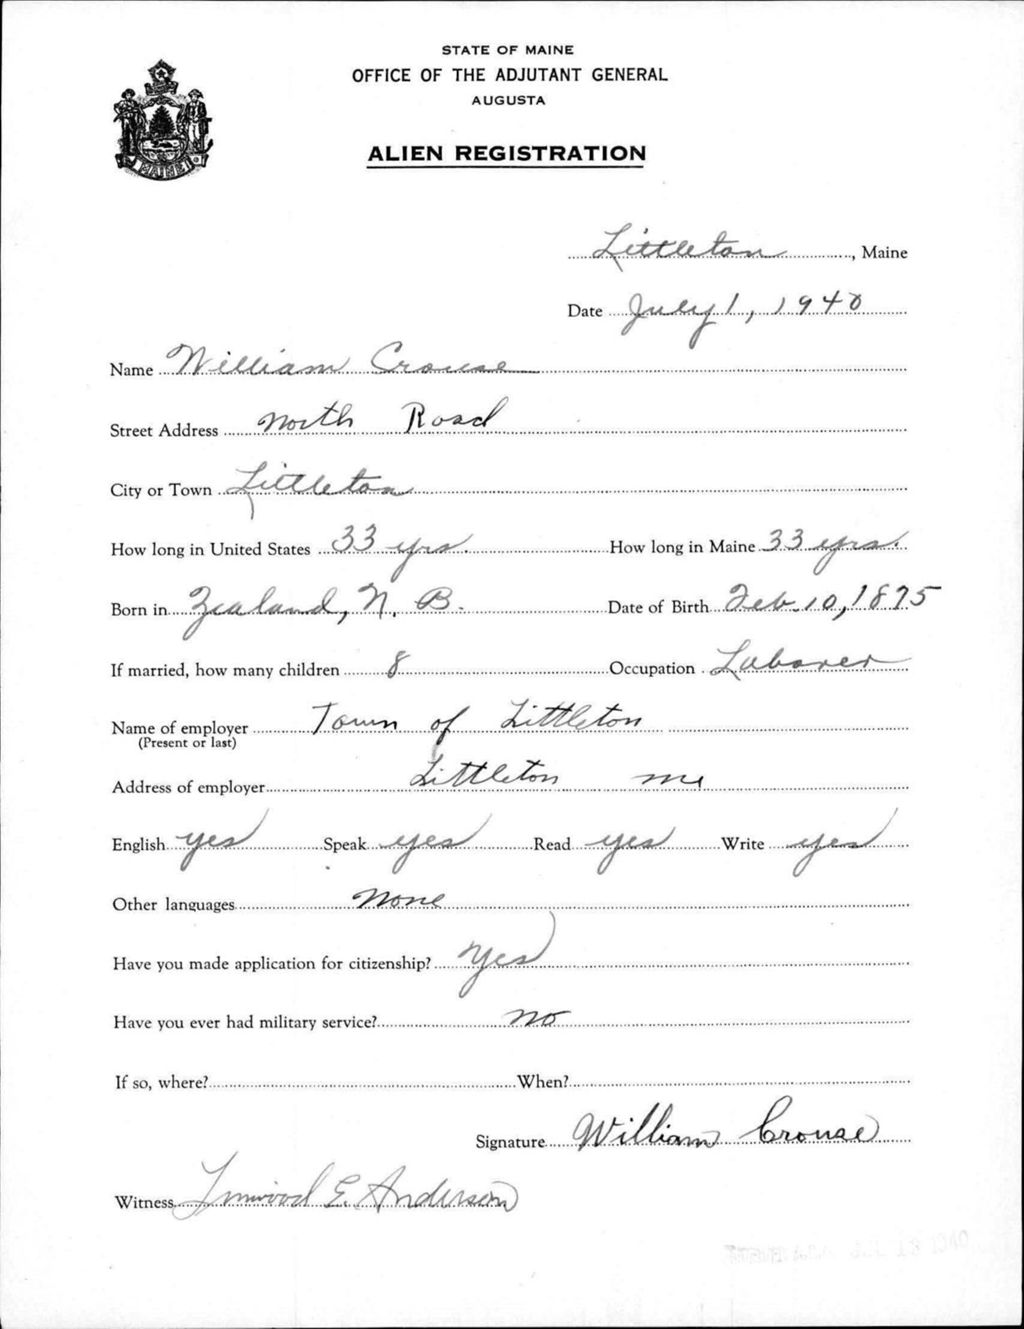 STATE OF MAINE
OFFICE OF THE ADJUTANT GENERAL
AUGUSTA
ALIEN REGISTRATION
MAINE
Littleton, Maine
Date July 1, 1940
Name William Crouse
Street Address North Road
City or Town Littleton
How long in United States 33 yrs. How long in Maine 33 yrs.
Born in Zealand, N. B. Date of Birth Feb. 10, 1875
If married, how many children 8 Occupation Laborer
Name of employer Town of Littleton
(Present or last)
Address of employer Littleton Me
English yes Speak yes Read yes Write yes
Other languages None
Have you made application for citizenship? Yes
Have you ever had military service? No
If so, where? When?
Signature William Crouse
Witness Linwood E. Anderson